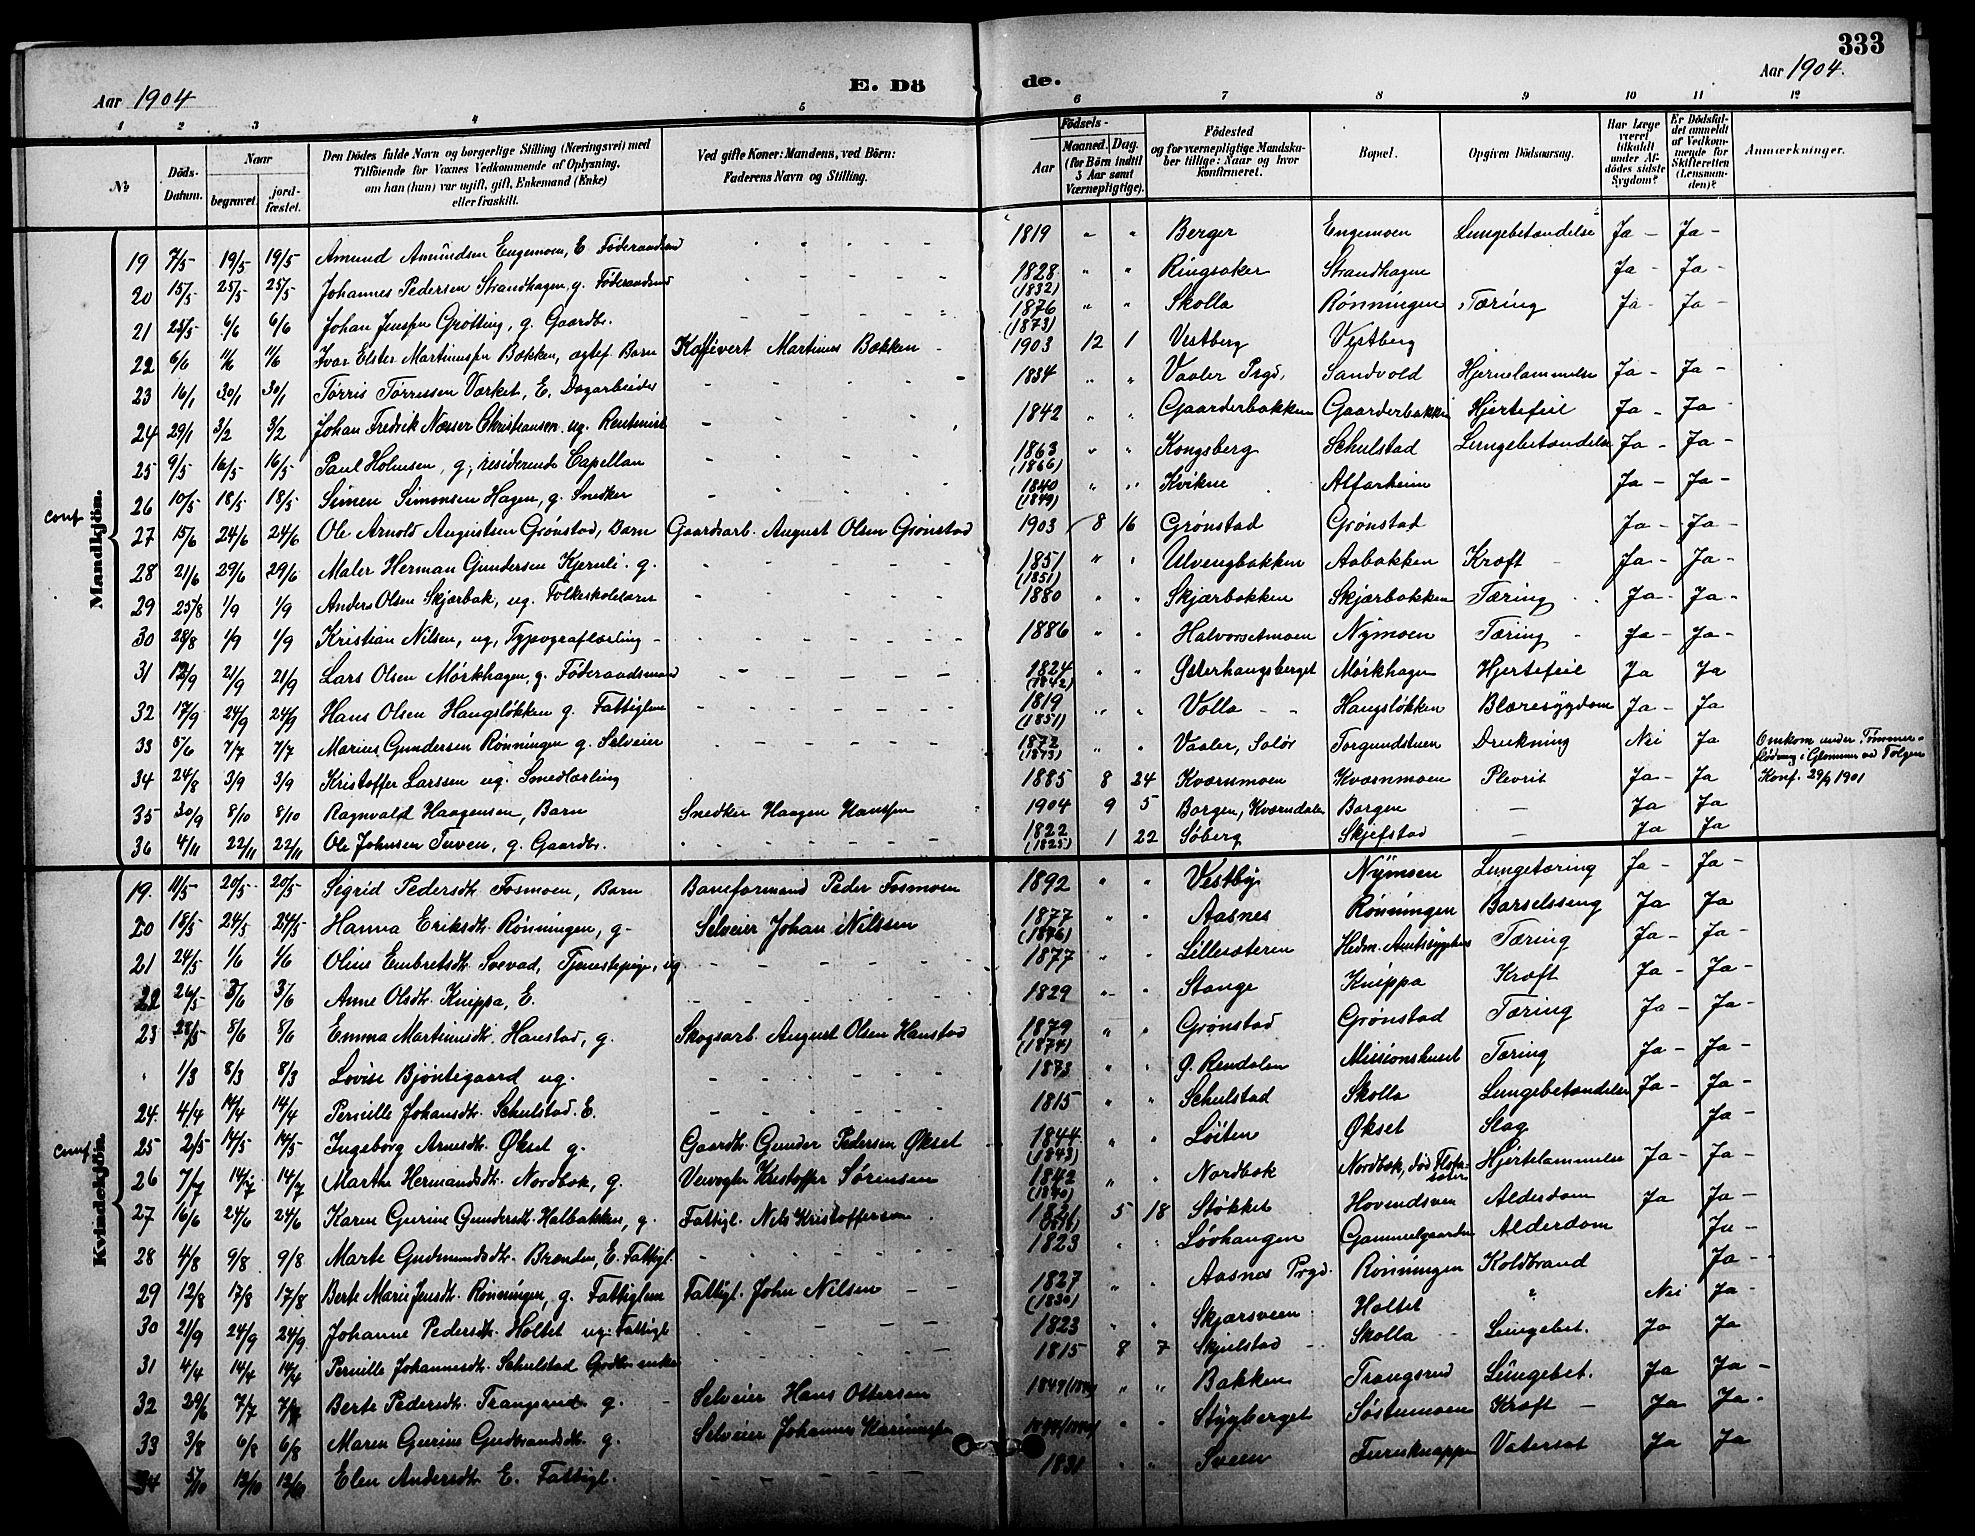 333
Aar 1904
E. Dö
de.
Aar 1904.
1 2 3 4 5 6 7 8 9 10 11 12
No
Döds-Datum.
Naar
begravet.
jord-fæstet.
Den Dödes fulde Navn og borgerlige Stilling (Næringsvei) med
Tilföiende for Voxnes Vedkommende af Oplysning,
om han (hun) var ugift, gift, Enkemand (Enke)
eller fraskilt.
Ved gifte Koner: Mandens, ved Börn:
Faderens Navn og Stilling.
Födsels-
Aar
Maaned. Dag.
(for Börn indtil
3 Aar samt
Værnepligtige).
Födested
og for værnepligtige Mandska-
ber tillige: Naar og hvor
konfirmeret.
Bopæl.
Opgiven Dödsaarsag.
Har Læge
været
tilkaldt
under Af-
dödes sidste
Sygdom?
Er Dödsfal-
det anmeldt
af Vedkom-
mende for
Skifteretten
(Lensman-
den)?
Anmærkninger.
Mandkjön.
conf
19 7/5 19/5 19/5 Amund Amundsen Engemoen, E Föderaadsmd 1819 " " Berger Engemoen Lungebetændelse Ja - Ja -
20 15/5 25/5 25/5 Johannes Pedersen Strandhagen, g. Föderaadsmd 1828 (1832) " " Ringsaker Strandhagen Ja - Ja -
21 25/5 6/6 6/6 Johan Jenssen Grøtting, g. Gaardbr. 1876 (1873) " " Skolla Rønningen Tæring Ja - Ja -
22 6/6 11/6 11/6 Ivar Elster Martinussen Bækken, ægtef. Barn Martinus Bækken 1903 12 1 Vestberg Vestberg
23 16/1 30/1 30/1 Tørris Tørrissen Værket, E. Dagarbeider 1834 " " Vaaler Prgd. Sandvold Hjernelammelse Ja - Ja -
24 29/1 3/2 3/2 Johan Fredrik Næsser Christiansen ug. Rentenist 1842 " " Gaarderbakken Gaarderbakken Hjertefeil Ja - Ja -
25 9/5 16/5 16/5 Paul Holmsen, g, residerende Capellan 1863 (1866) " " Kongsberg Schulstad Lungebetændelse Ja - Ja -
26 10/5 18/5 18/5 Simen Simonsen Hagen, g. Snedker 1840 (1849) " " Kvikne Alfarheim Ja - Ja -
27 15/6 24/6 24/6 Ole Arnold Augustsen Grønstad, Barn Gaardsarb. August Olsen Grønstad 1903 8 16 Grønstad Grønstad Ja - Ja -
28 21/6 29/6 29/6 Maler Herman Gundersen Kjernli. g. 1851 (1851) " " Ulvengbakken Aabakken Kræft Ja - Ja -
29 25/8 1/9 1/9 Anders Olsen Skjærbæk, ug. Folkeskolelærer 1880 " " Skjærbækken Skjærbækken Tæring Ja - Ja -
30 28/8 1/9 1/9 Kristian Nilsen, ug, Typograflærling 1886 " " Halvorsetmoen Nymoen Tæring Ja - Ja -
31 12/9 21/9 21/9 Lars Olsen Mørkhagen, g. Föderaadsmand 1824 (1842) " " Østerhaugsberget Mørkhagen Hjertefeil Ja Ja
32 17/9 24/9 24/9 Hans Olsen Haugsløkken g. Fattiglem 1819 (1851) " " Volla Haugsløkken Blæresygdom Ja - Ja
33 5/6 7/7 7/7 Marius Gundersen Rønningen g. Selveier 1872 (1873) " " Vaaler, Solør Torgundstuen Drukning Nei Ja Omkom under Tømmer-
fløtning i Glommen ved Tolgen
34 24/8 3/9 3/9 Kristoffer Larssen ug. Smedlærling 1885 8 24 Kværnmoen Kværnmoen Plevrit Ja - Ja Konf. 29/9 1901
35 30/9 8/10 8/10 Ragnvald Haagensen, Barn Snedker Haagen Hanssen 1904 9 5 Borgen, Kværndalen Borgen — Ja Ja
36 4/11 22/11 22/11 Ole Johnsen Tuven, g. Gaardbr. 1822 (1825) 1 22 Søberg Skjefstad — Ja Ja
Kvindekjön.
conf
19. 11/5 20/5 20/5 Sigrid Pedersdtr. Fosmoen, Barn Baneformand Peder Fosmoen 1892 " " Vestby Nymoen Lungetæring Ja - Ja -
20 18/5 24/5 24/5 Hanna Eriksdtr. Rønningen, g- Selveier Johan Nilssen 1877 (1876) " " Aasnes Rønningen Barselsseng Ja Ja
21 24/5 1/6 1/6 Oline Embretsdtr. Svevad, Tjenestepige, ug 1877 " " Lillesæteren Hedm. Amtssygehus Tæring Ja - Ja -
22 26/5 3/6 3/6 Anne Olsdtr. Knippa, E. 1829 " " Stange Knippa Kræft Ja - Ja -
23 28/5 8/6 8/6 Emma Martinusdtr. Hanstad, g. Skogsarb. August Olsen Hanstad 1879 (1874) " " Grønstad Grønstad Tæring Ja - Ja -
" 1/3 8/3 8/3 Lovise Bjøntegaard ug. 1873 " " Ø. Rendalen Missionshuset Tæring Ja - Ja -
24. 4/4 14/4 14/4 Pernille Johansdtr. Schulstad. E. 1815 " " Schulstad Skolla Lungebetændelse Ja - Ja -
25 2/5 14/5 14/5 Ingeborg Arnesdtr. Økset g. Gaardbr. Gunder Pedersen Økset 1844 (1843) " " Løiten Økset Slag Ja -
26 7/7 14/7 14/7 Marthe Hermandsdtr. Nordbæk, g. Veivogter Kristoffer Sørensen 1842 (1840) " " Nordbæk Nordbæk, død Hjertelammelse Ja - Ja -
27 16/6 24/6 24/6 Karen Gurine Gundersdtr. Halbakken, g. Fattigl. Nils Kristoffersen 5 18 Støkket Hovendsveen Alderdom Ja Ja -
28 4/8 9/8 9/8 Marte Gudmundsdtr. Brænden, E. Fattigl. 1823 " " Løvhaugen Gammelgaarden Alderdom Ja -
29 12/8 17/8 17/8 Berte Marie Jensdtr. Rønningen, g. Fattiglem Fattigl. John Nilsen 1827 (1830) " " Aasnes Prgd. Rønningen Koldbrand Ja -
30 21/9 24/9 24/9 Johanne Pedersdtr. Holtet ug. Fattigl 1823 Skjærsveen Holtet " Nei Ja -
31 4/4 14/4 14/4 Pernille Johannesdtr. Schulstad Grdbr. enke 1815 8 7 Skjulstad Skolla Lungebet. Ja Ja
32 29/6 7/7 7/7 Berte Pedersdtr. Trangsrud g. Selveier Hans Ottersen " " Bakken Trangsrud Lungebet. Ja Ja -
33 3/8 6/8 6/8 Maren Gurine Gudbrandsdtr. g. Selveier Johannes " " Stygberget Søstumoen Kræft - Ja Ja -
34 5/10 12/10 12/10 Elen Andersdtr. E. Fattigl. 1831 " " Sveen Furuknappen Vatersot Ja Ja